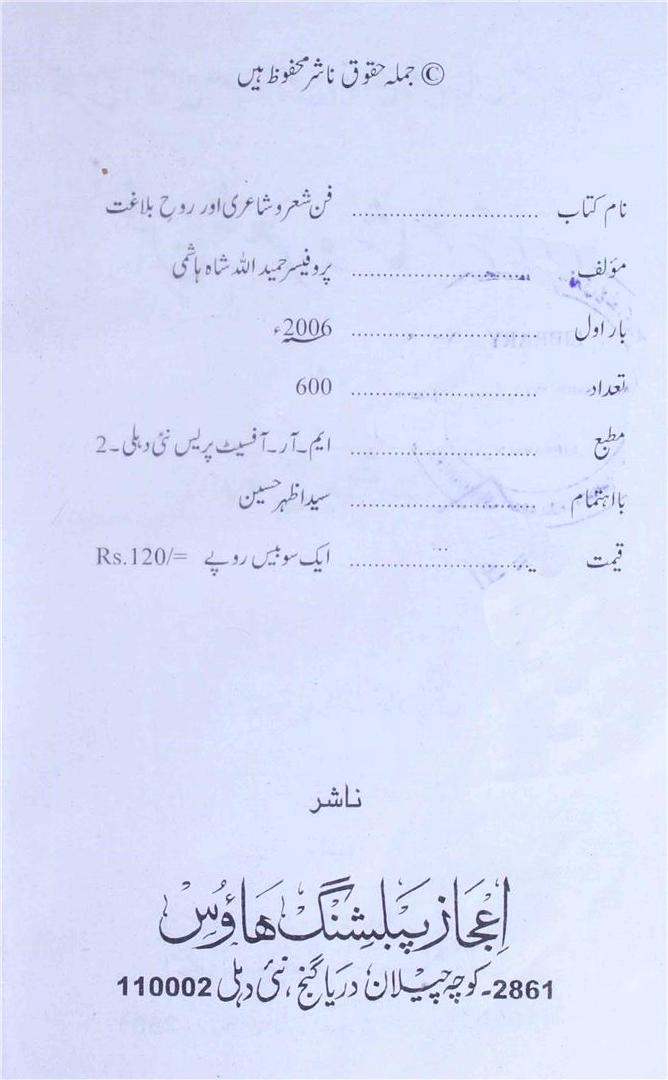 © جملہ حقوق ناشر محفوظ ہیں
نام کتاب ............................ فن شعر و شاعری اور روحِ بلاغت
مؤلف ............................ پروفیسر حمید اللہ شاہ ہاشمی
بار اول ............................ 2006ء
تعداد ............................ 600
مطبع ............................ ایم۔آر۔آفسیٹ پریس نئی دہلی۔2
بااہتمام ............................ سید اظہر حسین
قیمت ............................ ایک سو بیس روپے Rs.120/=
ناشر
اعجاز پبلشنگ ہاؤس
2861۔کوچہ چیلان دریا گنج، نئی دہلی 110002
LIBRARY